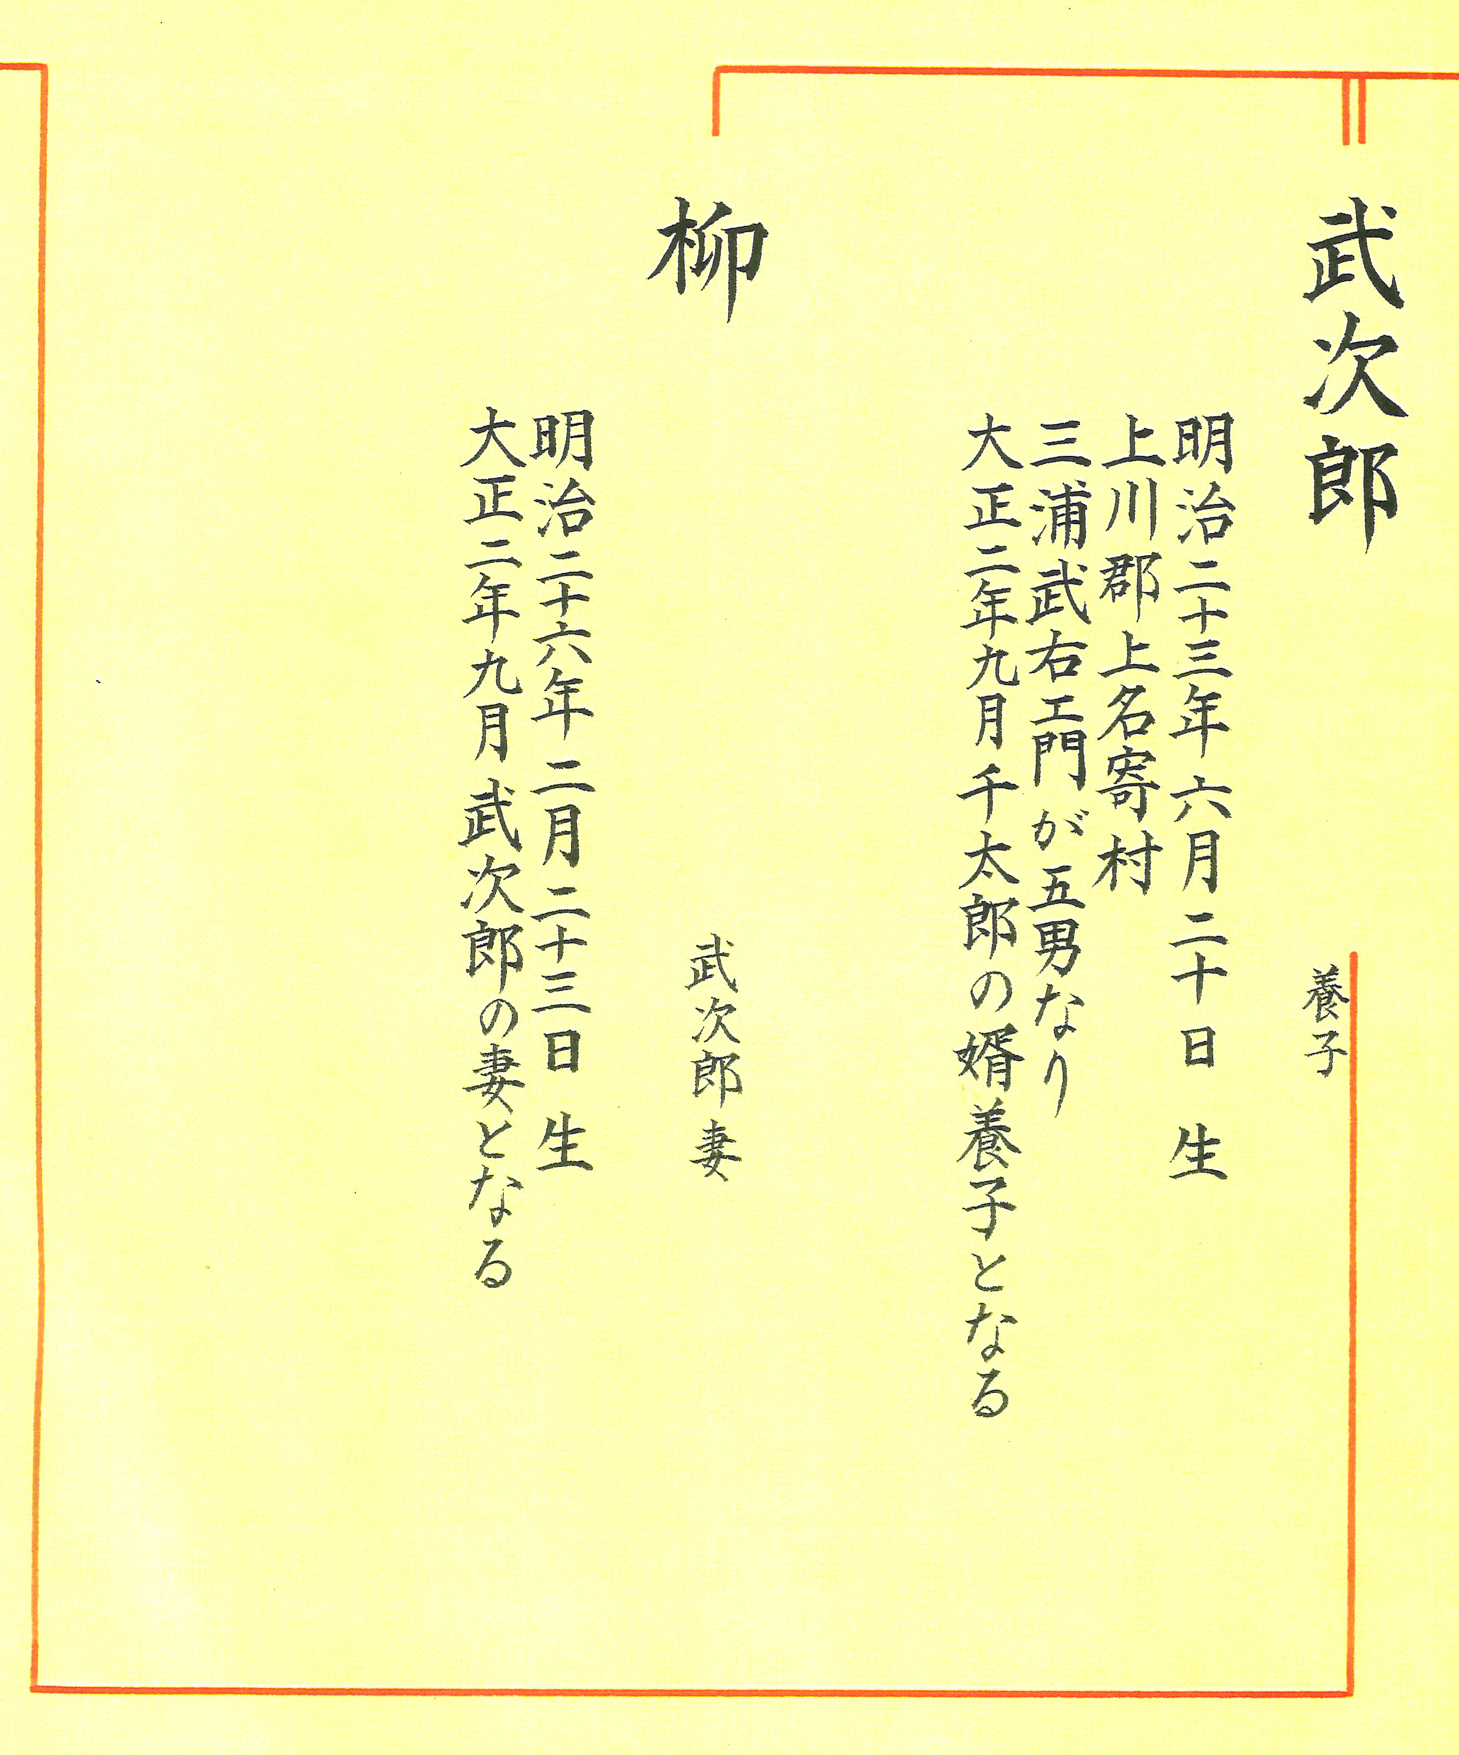 武次郎
養子
明治二十三年六月二十日 生
上川郡上名寄村
三浦武右エ門が五男なり
大正二年九月千太郎の婿養子となる
柳
武次郎妻
明治二十六年二月二十三日 生
大正二年九月武次郎の妻となる